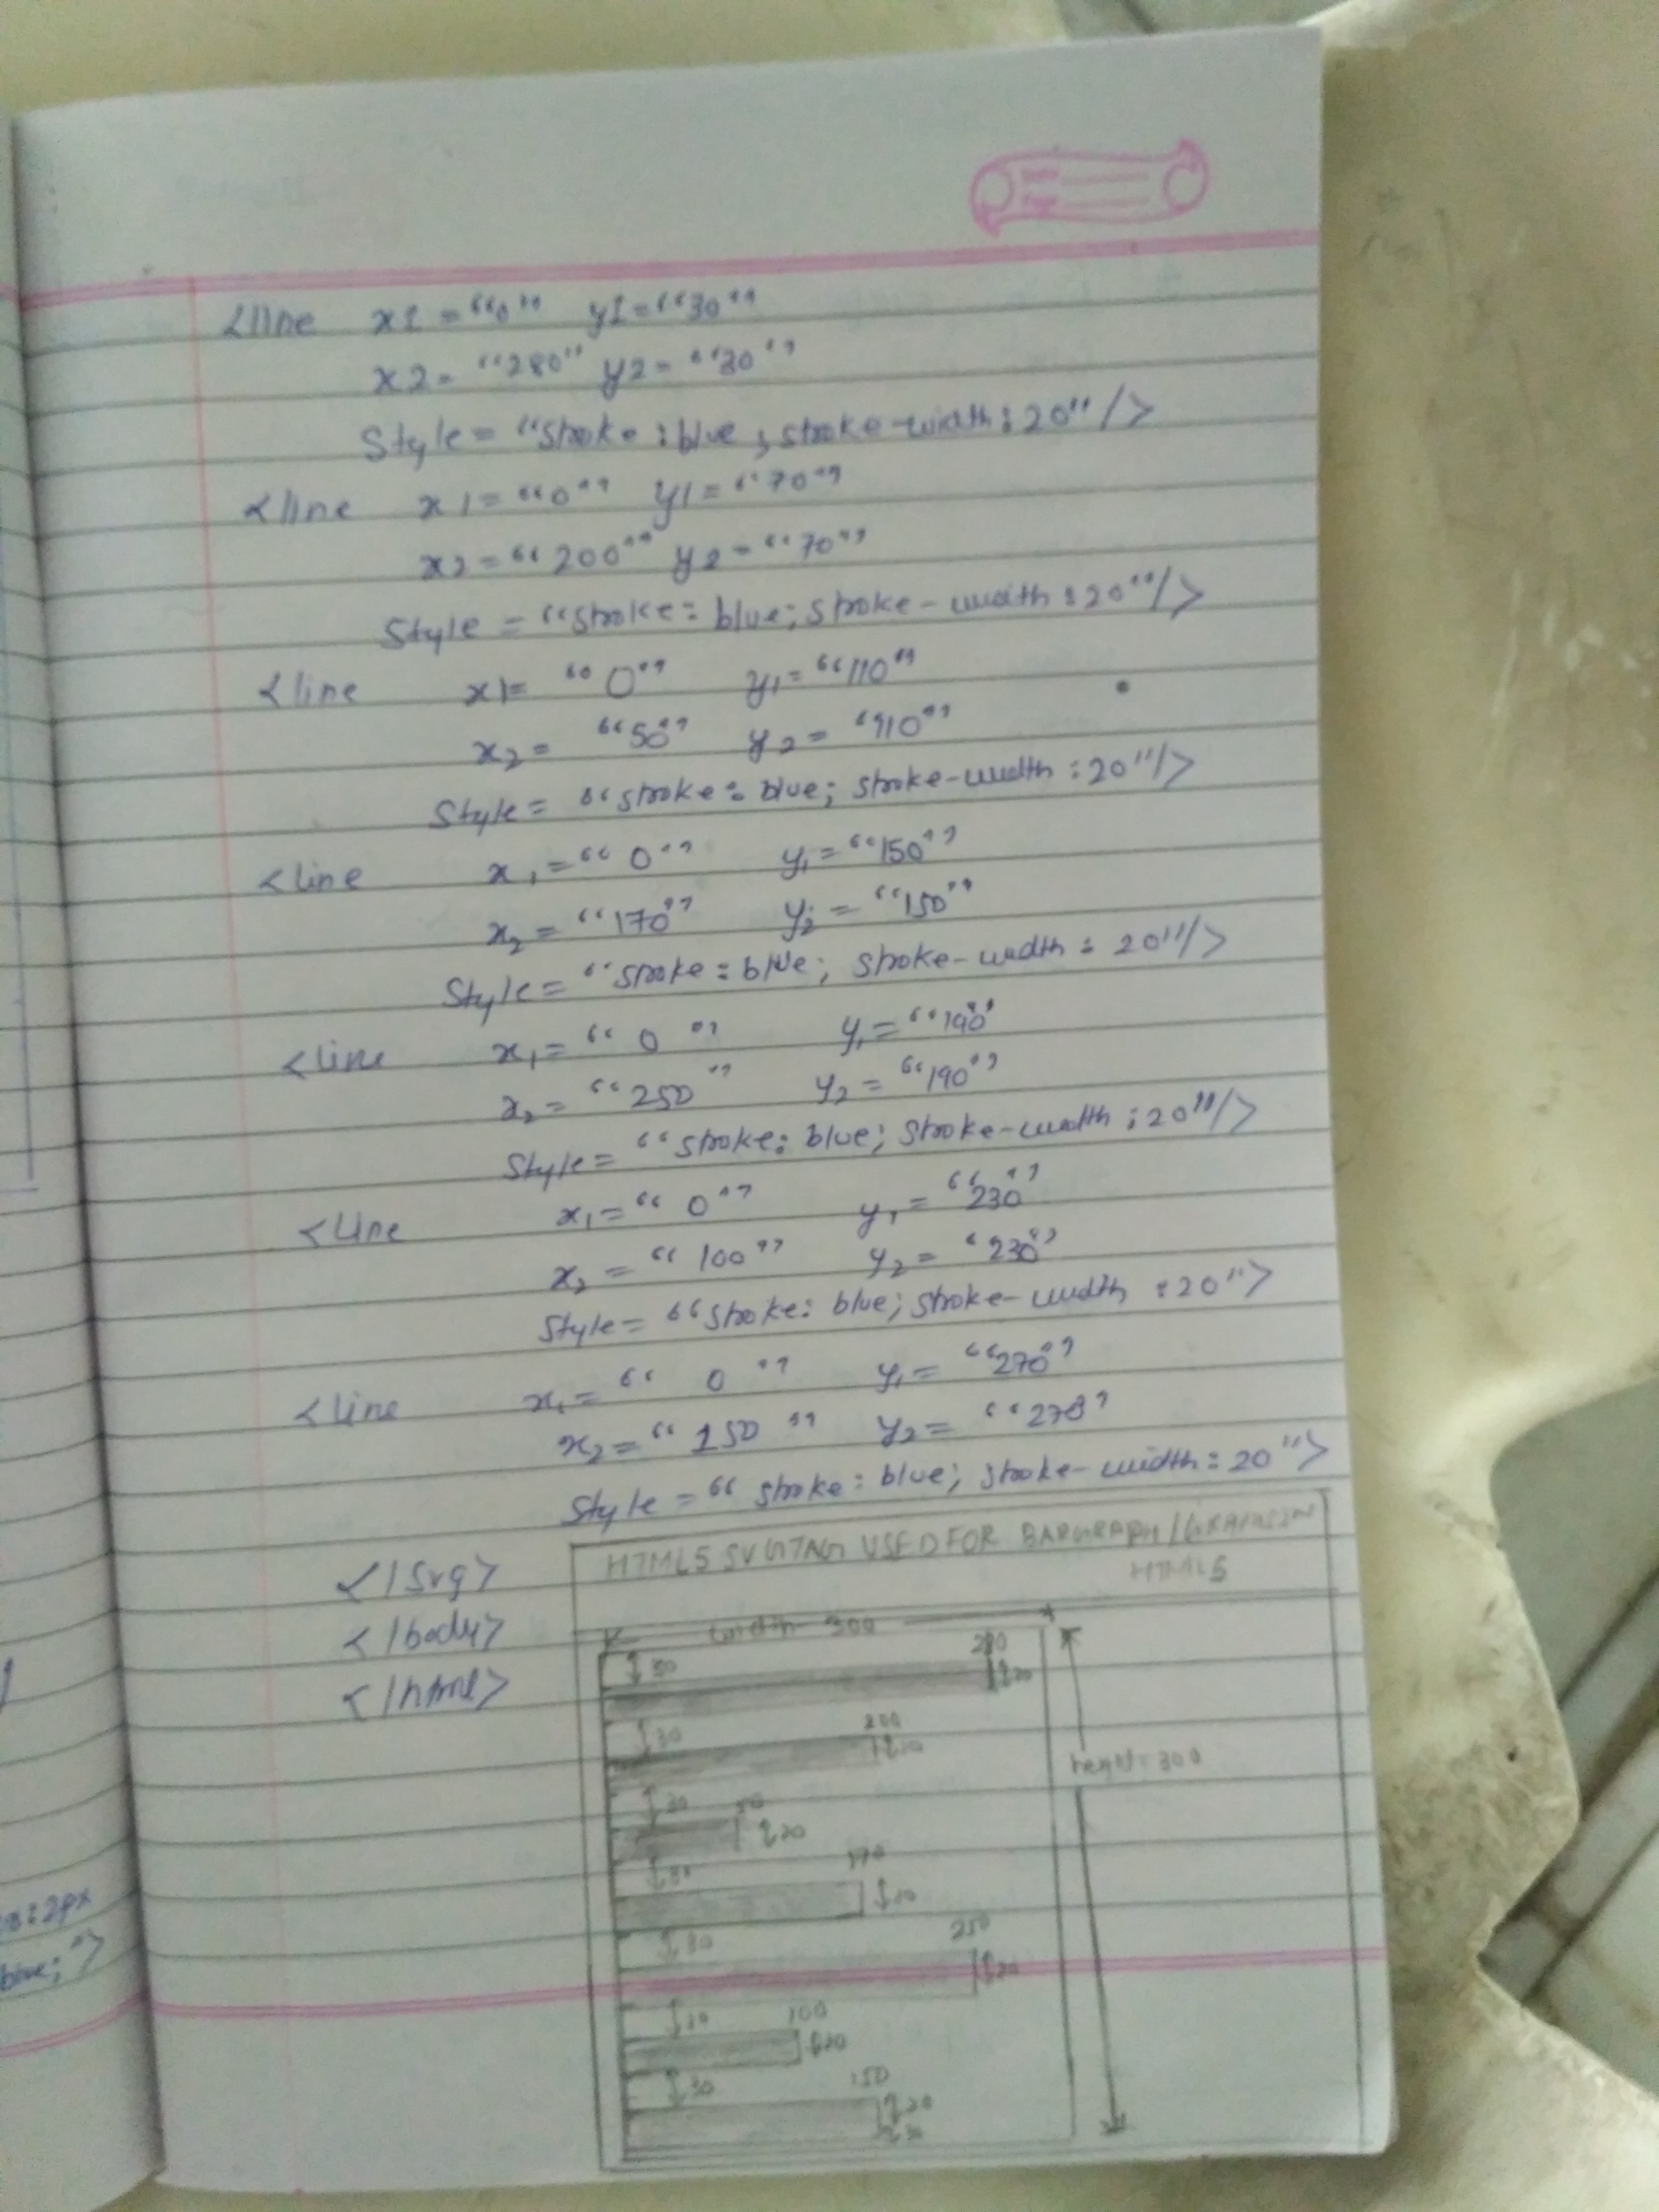 <line x1 = "0" y1 = "30"
x2 = "280" y2 = "30"
Style = "Stroke : blue ; stroke-width : 20" />
<line x1 = "0" y1 = "70"
x2 = "200" y2 = "70"
Style = "stroke : blue; stroke-width : 20" />
<line x1 = "0" y1 = "110"
x2 = "50" y2 = "110"
Style = "stroke : blue; stroke-width : 20" />
<line x1 = "0" y1 = "150"
x2 = "170" y2 = "150"
Style = "stroke : blue; stroke-width : 20" />
<line x1 = "0" y1 = "190"
x2 = "250" y2 = "190"
Style = "stroke : blue; stroke-width : 20" />
<line x1 = "0" y1 = "230"
x2 = "100" y2 = "230"
Style = "stroke : blue; stroke-width : 20">
<line x1 = "0" y1 = "270"
x2 = "150" y2 = "270"
Style = "stroke : blue; stroke-width : 20">
</svg>
</body>
</html>
HTML5 SVG TAG USED FOR BARGRAPH /
HTML5
width = 300
30 280 20
30 200 20
30 50 20
height = 300
30 170 20
30 250 20
30 100 20
30 150 20
2px
blue;">